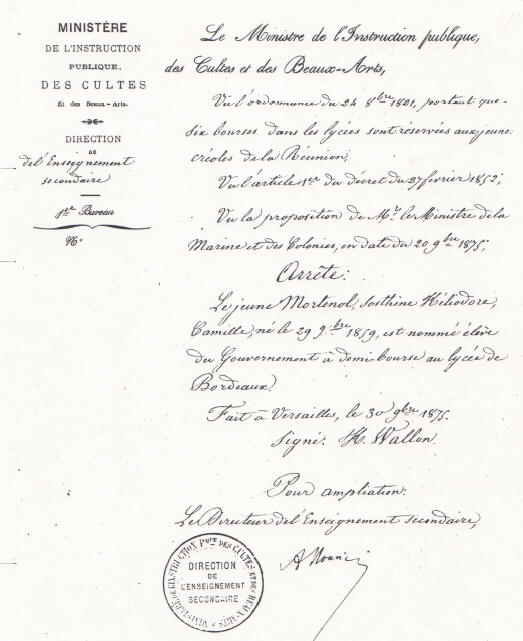 MINISTÈRE
DE L'INSTRUCTION
PUBLIQUE,
DES CULTES
Et des Beaux-Arts.
DIRECTION
DE
de l'Enseignement
secondaire
1er Bureau
No
Le Ministre de l'Instruction publique,
des Cultes et des Beaux-Arts,
Vu l'ordonnance du 24 8bre 1821, portant que
six bourses dans les lycées sont réservées aux jeunes
créoles de la Réunion;
Vu l'article 1er du décret du 27 février 1852;
Vu la proposition de Mr. le Ministre de la
Marine et des Colonies, en date du 20 9bre 1875;
Arrête:
Le jeune Mortenol, Sosthène Héliodore,
Camille, né le 29 9bre 1859, est nommé élève
du Gouvernement à demi-bourse au lycée de
Bordeaux.
Fait à Versailles, le 30 9bre 1875.
Signé: H. Wallon.
Pour ampliation:
Le Directeur de l'Enseignement secondaire,
MINISTÈRE DE L'INSTRUCTION Pque DES CULTES ET DES BEAUX-ARTS
DIRECTION
DE
L'ENSEIGNEMENT
SECONDAIRE